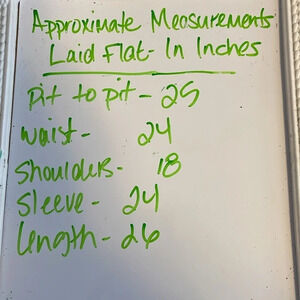 Approximate Measurements
Laid Flat - In Inches
pit to pit - 25
waist - 24
Shoulders - 18
Sleeve - 24
Length - 26